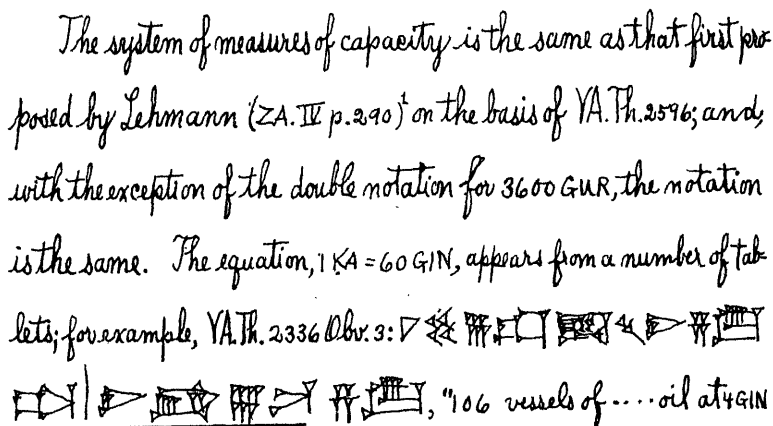 The system of measures of capacity is the same as that first pro-
posed by Lehmann (ZA. IV p. 290)¹ on the basis of VA. Th. 2596; and,
with the exception of the double notation for 3600 GUR, the notation
is the same. The equation, 1 KA = 60 GIN, appears from a number of tab-
lets; for example, VA. Th. 2336 Obv. 3:
, "106 vessels of .... oil at 4 GIN